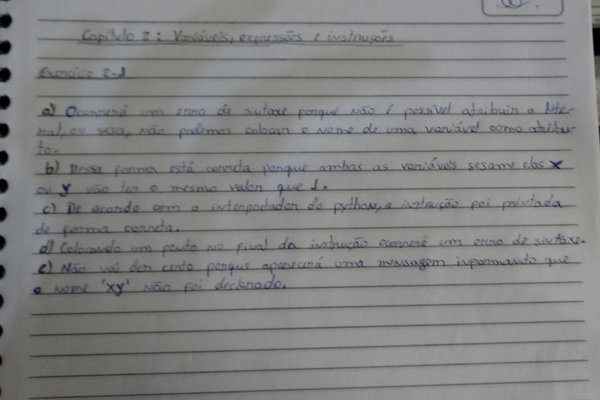 Capítulo 2: Variáveis, expressões e instruções
Exercício 2.1
a) Ocorrerá um erro de sintaxe porque não é possível atribuir a lite-
ral, ou seja, não podemos colocar o nome de uma variável como atribu-
to.
b) Dessa forma está correta porque ambas as variáveis sejam elas x
ou y vão ter o mesmo valor que 1.
c) De acordo com o interpretador do python, a instrução foi printada
de forma correta.
d) Colocando um ponto no final da instrução ocorrerá um erro de sintaxe.
e) Não vai dar certo porque aparecerá uma mensagem informando que
o nome 'xy' não foi declarado.